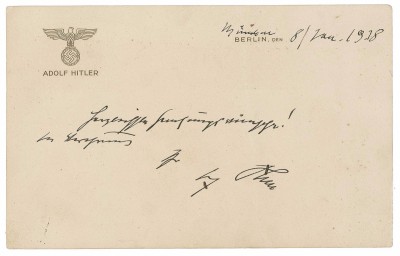 München
BERLIN, DEN 8/Jan. 1938
ADOLF HITLER
Herzlichste Genesungswünsche!
In Verehrung
Ihr